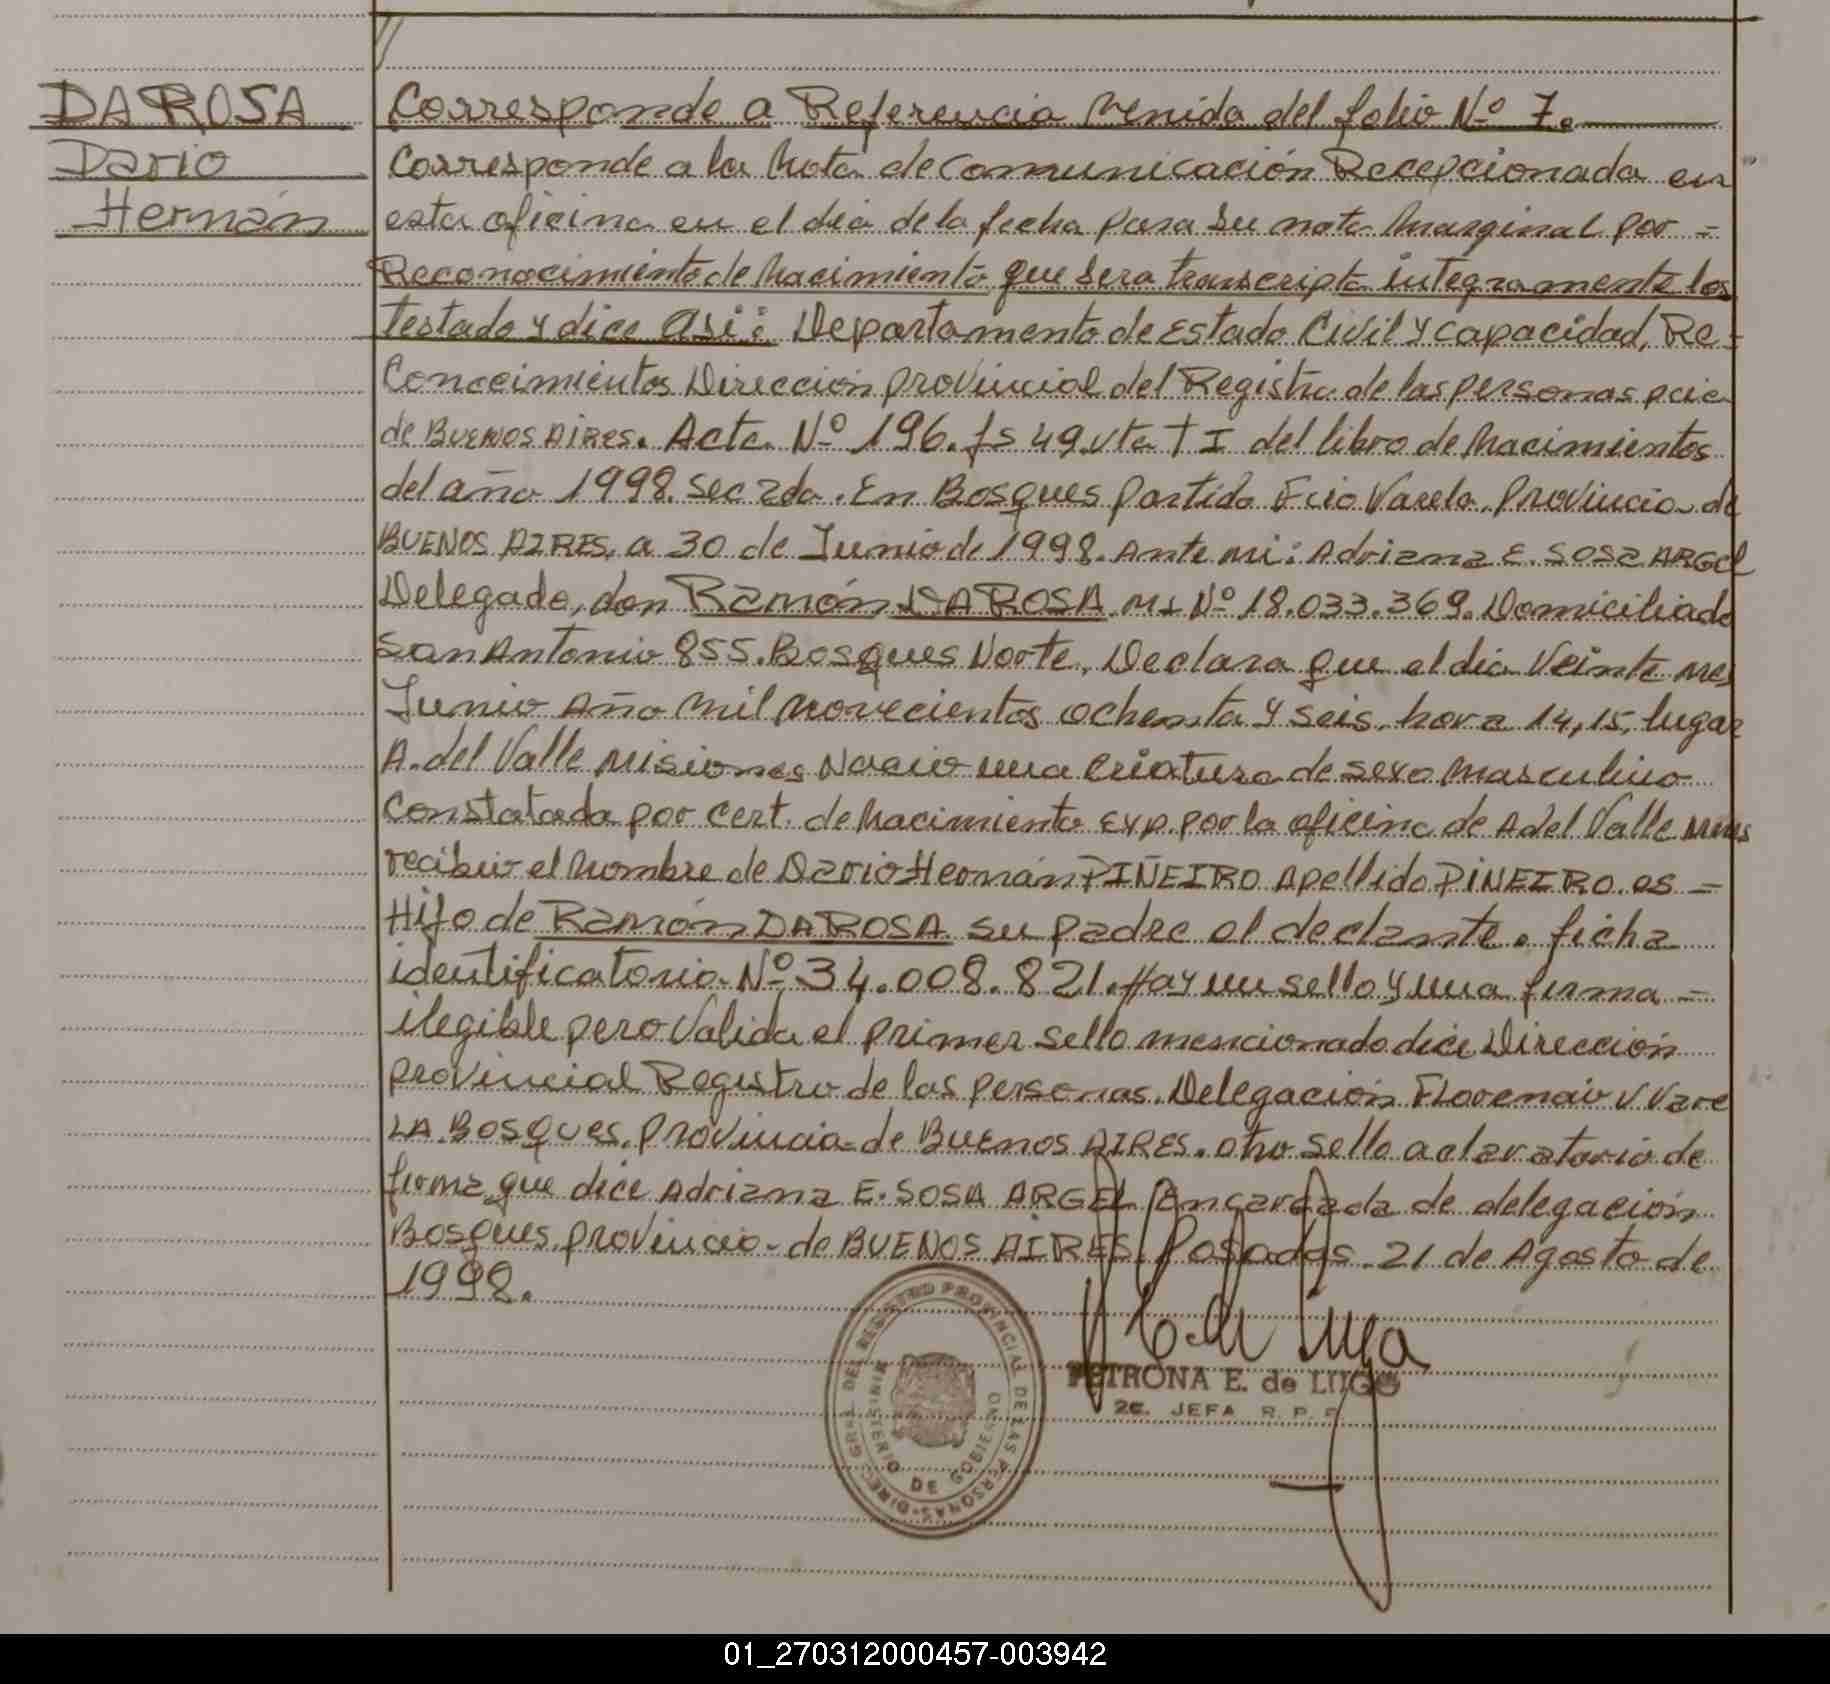 DA ROSA
Dario
Hernán
Corresponde a Referencia Venida del folio Nº 7.
Corresponde a la Nota de Comunicación Recepcionada en
esta oficina en el dia de la fecha para su nota Marginal por =
Reconocimiento de Nacimiento que sera transcripta integramente lo
testado y dice asi: Departamento de Estado Civil y capacidad, Re=
Conocimientos Dirección provincial del Registro de las personas pcia
de BUENOS AIRES. Acta Nº 196. fs 49.vta T I del libro de Nacimientos
del año 1998. Sec 2da. En Bosques partido Fcio Varela. Provincia de
BUENOS AIRES, a 30 de Junio de 1998. Ante mi: Adriana E. SOSA ARGEL
Delegado, don Ramón DA ROSA MI Nº 18.033.369. Domiciliado
San Antonio 855. Bosques Norte, Declara que el dia Veinte mes
Junio Año Mil Novecientos ochenta y seis, hora 14,15, lugar
A. del Valle Misiones Nacio una criatura de sexo Masculino
Constatada por cert. de Nacimiento Exp. por la oficina de A del Valle Mnes
recibio el Nombre de Dario Hernán PIÑEIRO Apellido PIÑEIRO. es =
Hijo de Ramón DA ROSA su padre el declante. ficha
identificatoria Nº 34.008.821. Hay un sello y una firma =
ilegible pero Valida el primer sello mencionado dice Dirección
provincial Registro de las personas. Delegación Florencio V Vare
LA. Bosques. Provincia de BUENOS AIRES. otro sello aclaratorio de
firma que dice Adriana E. SOSA ARGEL Encargada de delegación
Bosques, provincia de BUENOS AIRES. Posadas. 21 de Agosto de
1998.
DIREC. GRAL. DEL REGISTRO PROVINCIAL DE LAS PERSONAS
MINISTERIO DE GOBIERNO
PETRONA E. de LUGO
2a. JEFA R. P. P.
01_270312000457-003942